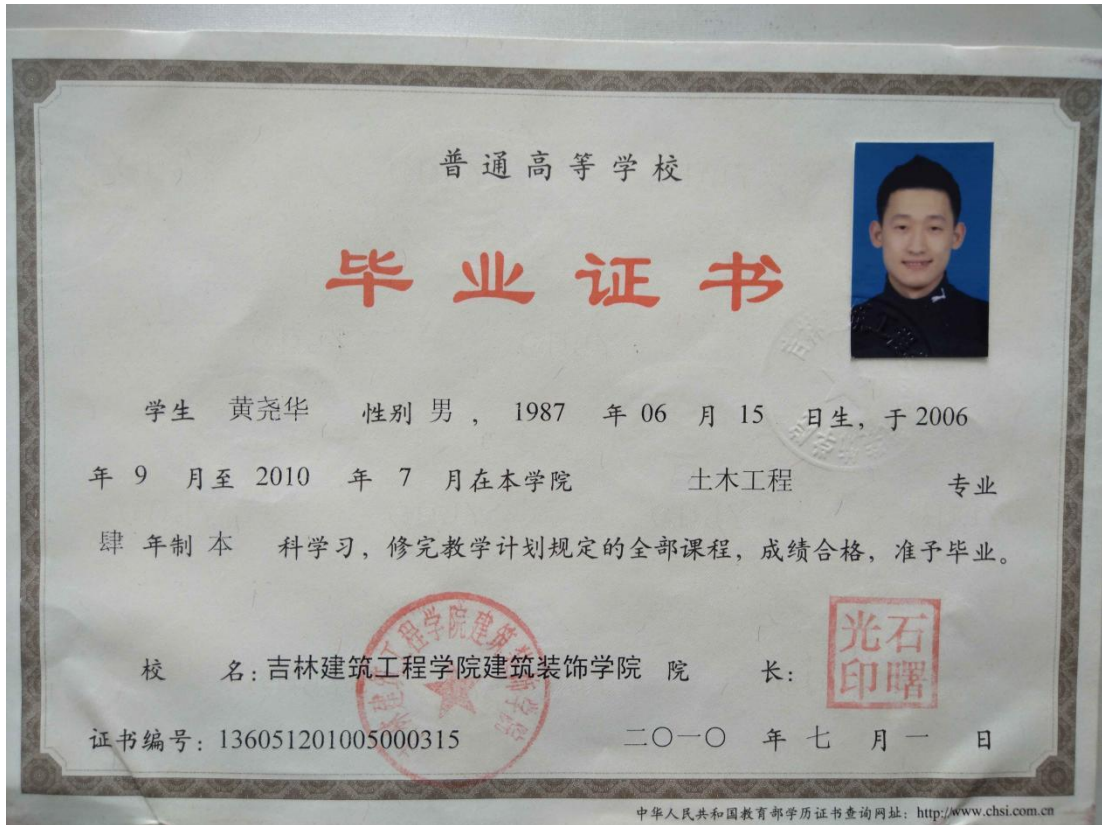 普通高等学校
毕业证书
学生 黄尧华 性别 男 ， 1987 年 06 月 15 日生，于 2006
年 9 月至 2010 年 7 月在本学院 土木工程 专业
肆 年制 本 科学习，修完教学计划规定的全部课程，成绩合格，准予毕业。
校 名：吉林建筑工程学院建筑装饰学院 院 长：
石曙光印
吉林建筑工程学院建筑装饰学院
证书编号：136051201005000315 二〇一〇 年 七 月 一 日
中华人民共和国教育部学历证书查询网址：http://www.chsi.com.cn